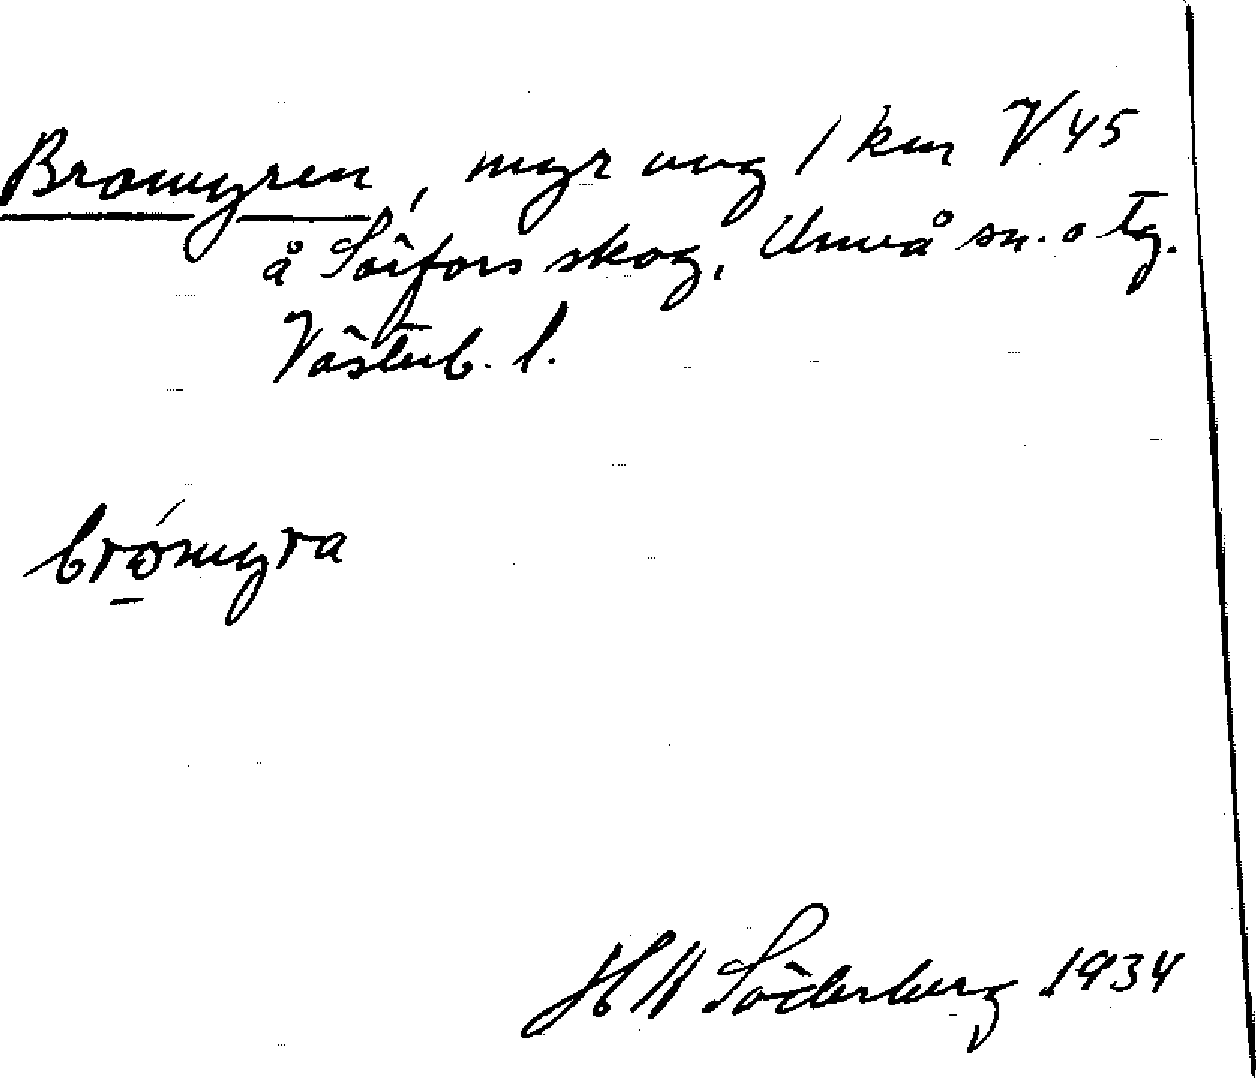 Bromyren, myr ung 1 km V 45
å Sörfors skog, Umeå sn. o tg.
Västerb. l.
brómyra
H W Söderberg 1934